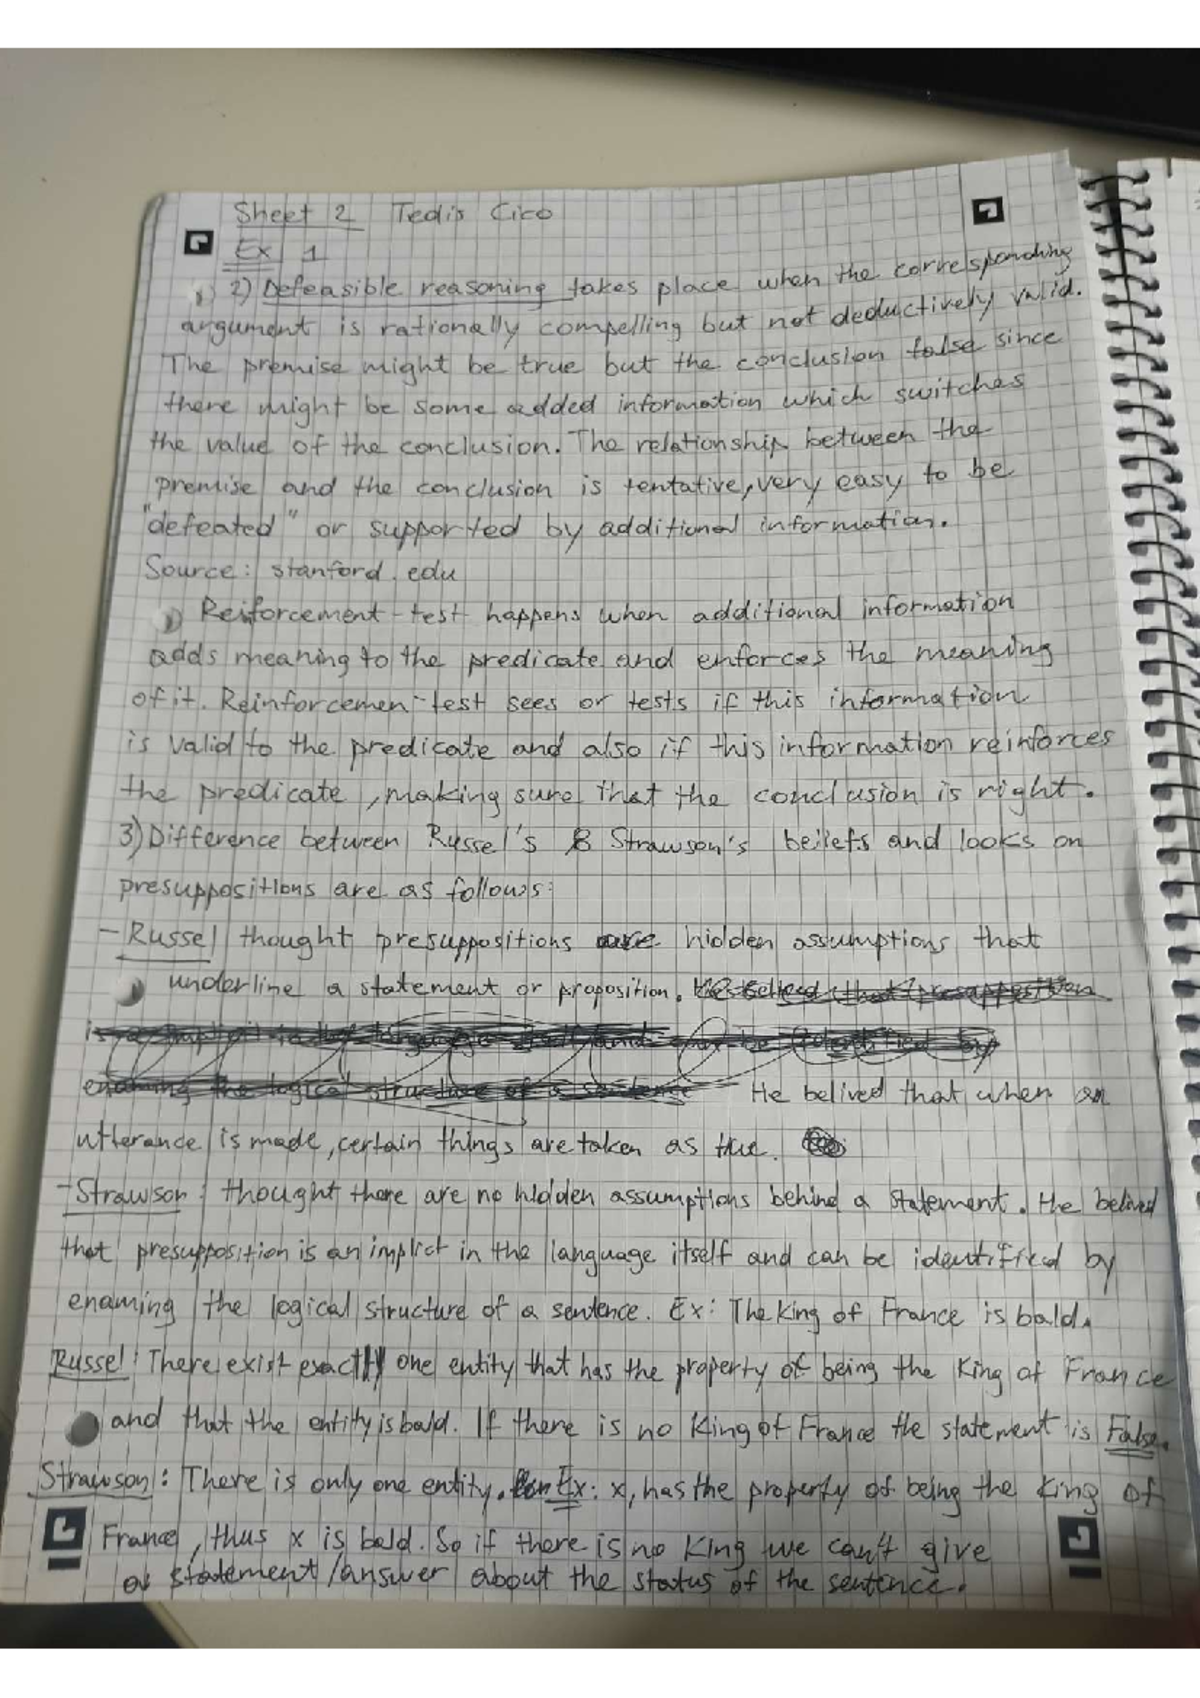 Sheet 2 Tedis Cico
Ex 1
2) Defeasible reasoning takes place when the corresponding
argument is rationally compelling but not deductively valid.
The premise might be true but the conclusion false since
there might be some added information which switches
the value of the conclusion. The relationship between the
premise and the conclusion is tentative, very easy to be
"defeated" or supported by additional information.
Source: stanford.edu
1) Reiforcement-test happens when additional information
adds meaning to the predicate and enforces the meaning
of it. Reinforcemen-test sees or tests if this information
is valid to the predicate and also if this information reinforces
the predicate, making sure that the conclusion is right.
3) Difference between Russel's & Strawson's beliefs and looks on
presuppositions are as follows:
- Russel thought presuppositions are hidden assumptions that
underline a statement or proposition.
He belived that when an
utterance is made, certain things are taken as true.
- Strawson: thought there are no hidden assumptions behind a statement. He belived
that presupposition is an implict in the language itself and can be identified by
enaming the logical structure of a sentence. Ex: The King of France is bald.
Russel: There exist exactly one entity that has the property of being the King of France
and that the entity is bald. If there is no King of France the statement is False.
Strawson: There is only one entity. Ex: x, has the property of being the King of
France, thus x is bald. So if there is no King we can't give
a statement/answer about the status of the sentence.